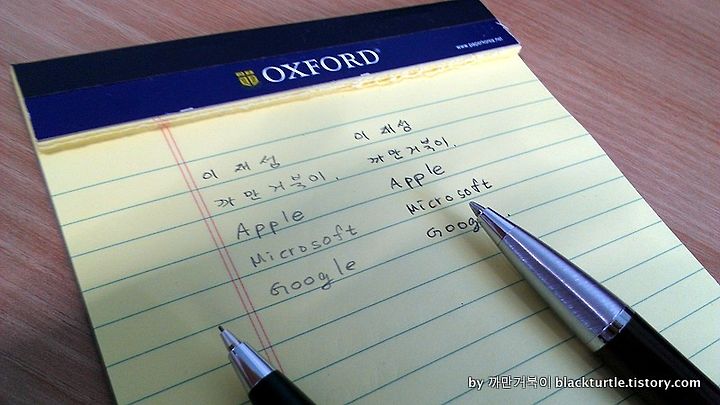 OXFORD
www.paperkorea.net
이 재 성
까 만 거 북 이.
Apple
Microsoft
Google
이 재 성
까 만 거 북 이.
Apple
Microsoft
Goog
by 까만거북이 blackturtle.tistory.com